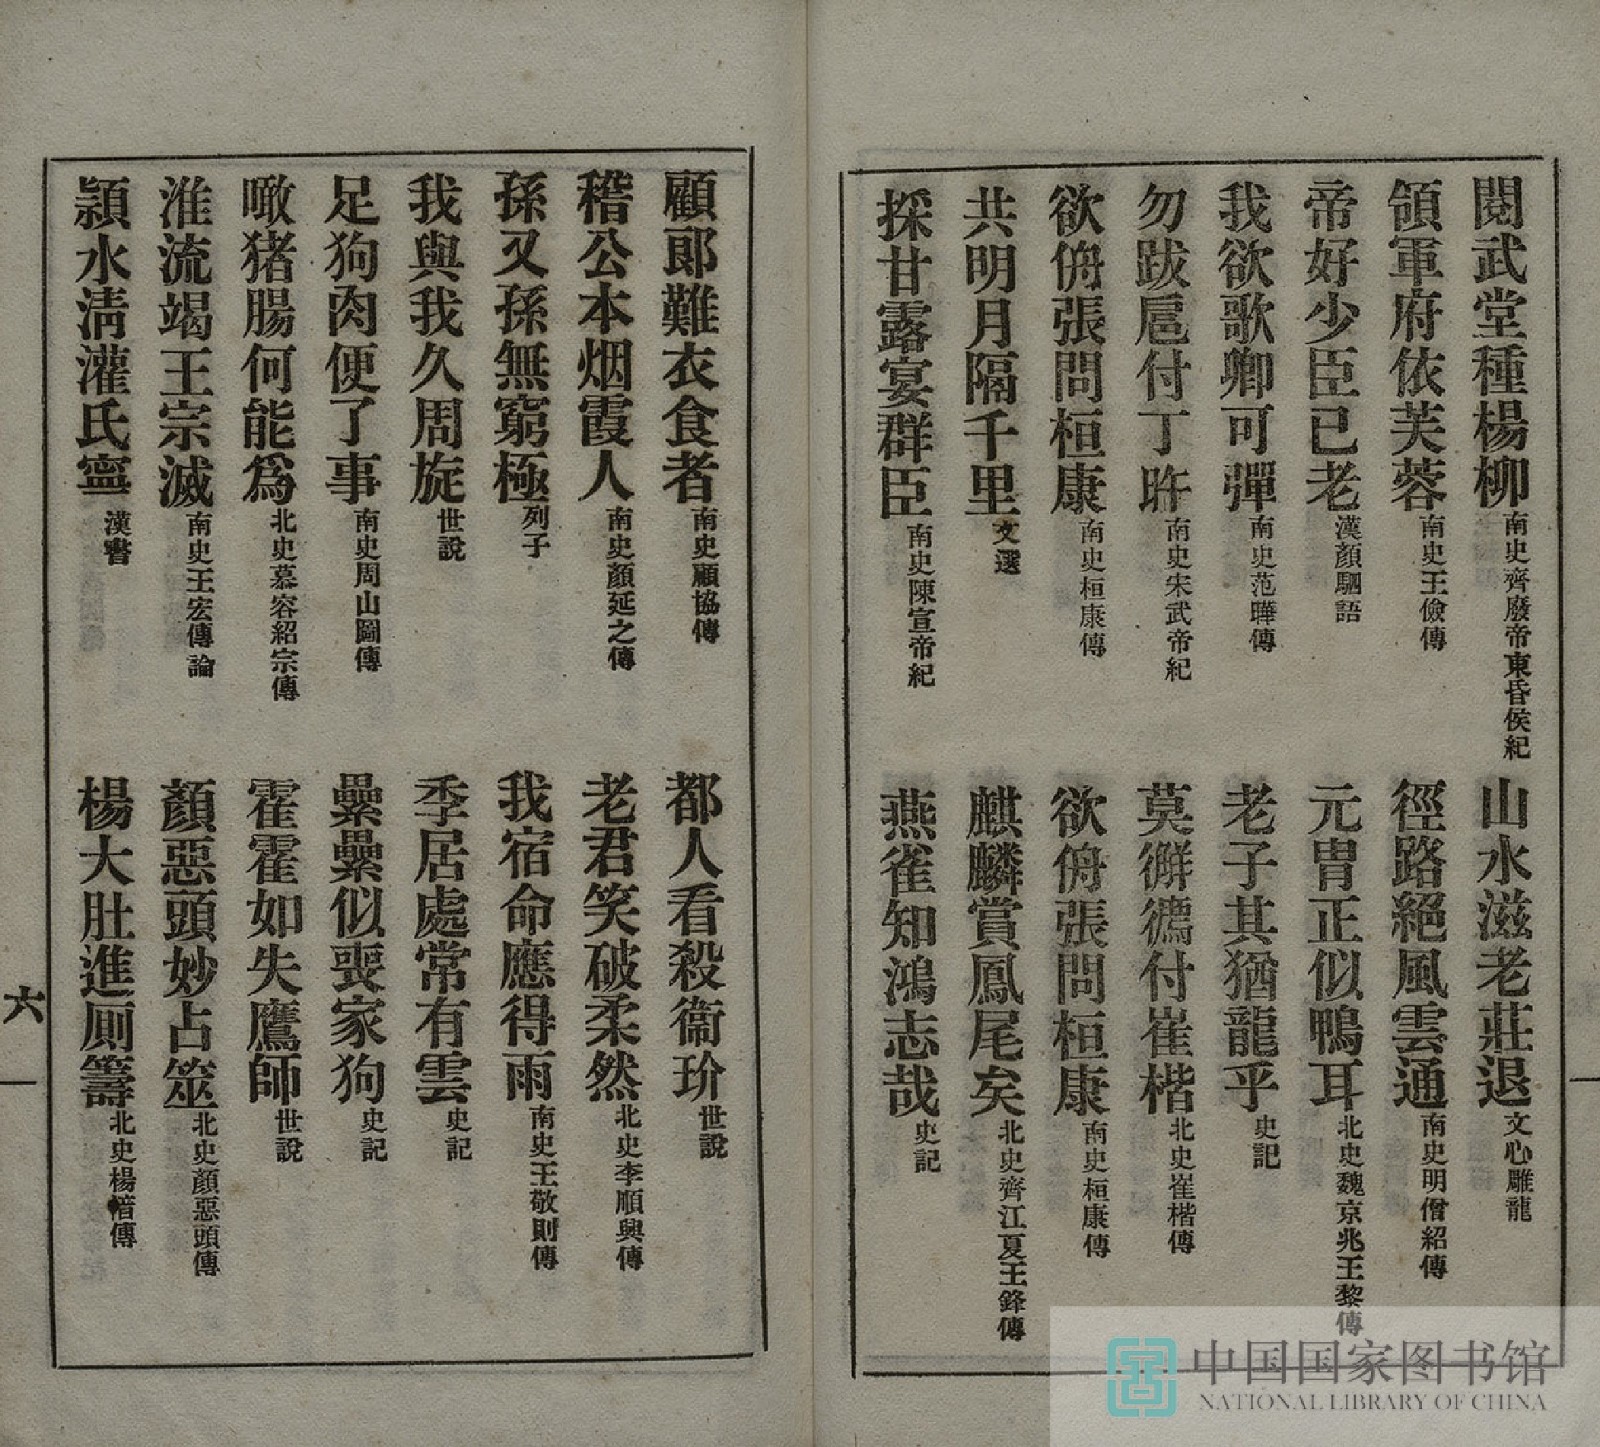 閱武堂種楊柳南史齊廢帝東昏侯紀
山水滋老莊退文心雕龍
領軍府依芙蓉南史王儉傳
徑路絕風雲通南史明僧紹傳
帝好少臣已老漢顏駟語
元冑正似鴨耳北史魏京兆王黎傳
我欲歌卿可彈南史范曄傳
老子其猶龍乎史記
勿跋扈付丁旿南史宋武帝紀
莫㺒㺔付崔楷北史崔楷傳
欲侜張問桓康南史桓康傳
欲侜張問桓康南史桓康傳
共明月隔千里文選
麒麟賞鳳尾矣北史齊江夏王鋒傳
採甘露宴群臣南史陳宣帝紀
燕雀知鴻志哉史記
顧郎難衣食者南史顧協傳
都人看殺衞玠世說
稽公本烟霞人南史顏延之傳
老君笑破柔然北史李順興傳
孫又孫無窮極列子
我宿命應得雨南史王敬則傳
我與我久周旋世說
季居處常有雲史記
足狗肉便了事南史周山圖傳
纍纍似喪家狗史記
噉猪腸何能爲北史慕容紹宗傳
霍霍如失鷹師世說
淮流竭王宗滅南史王宏傳論
顏惡頭妙占筮北史顏惡頭傳
潁水淸灌氏寧漢書
楊大肚進厠籌北史楊愔傳
六
中国国家图书馆
NATIONAL LIBRARY OF CHINA